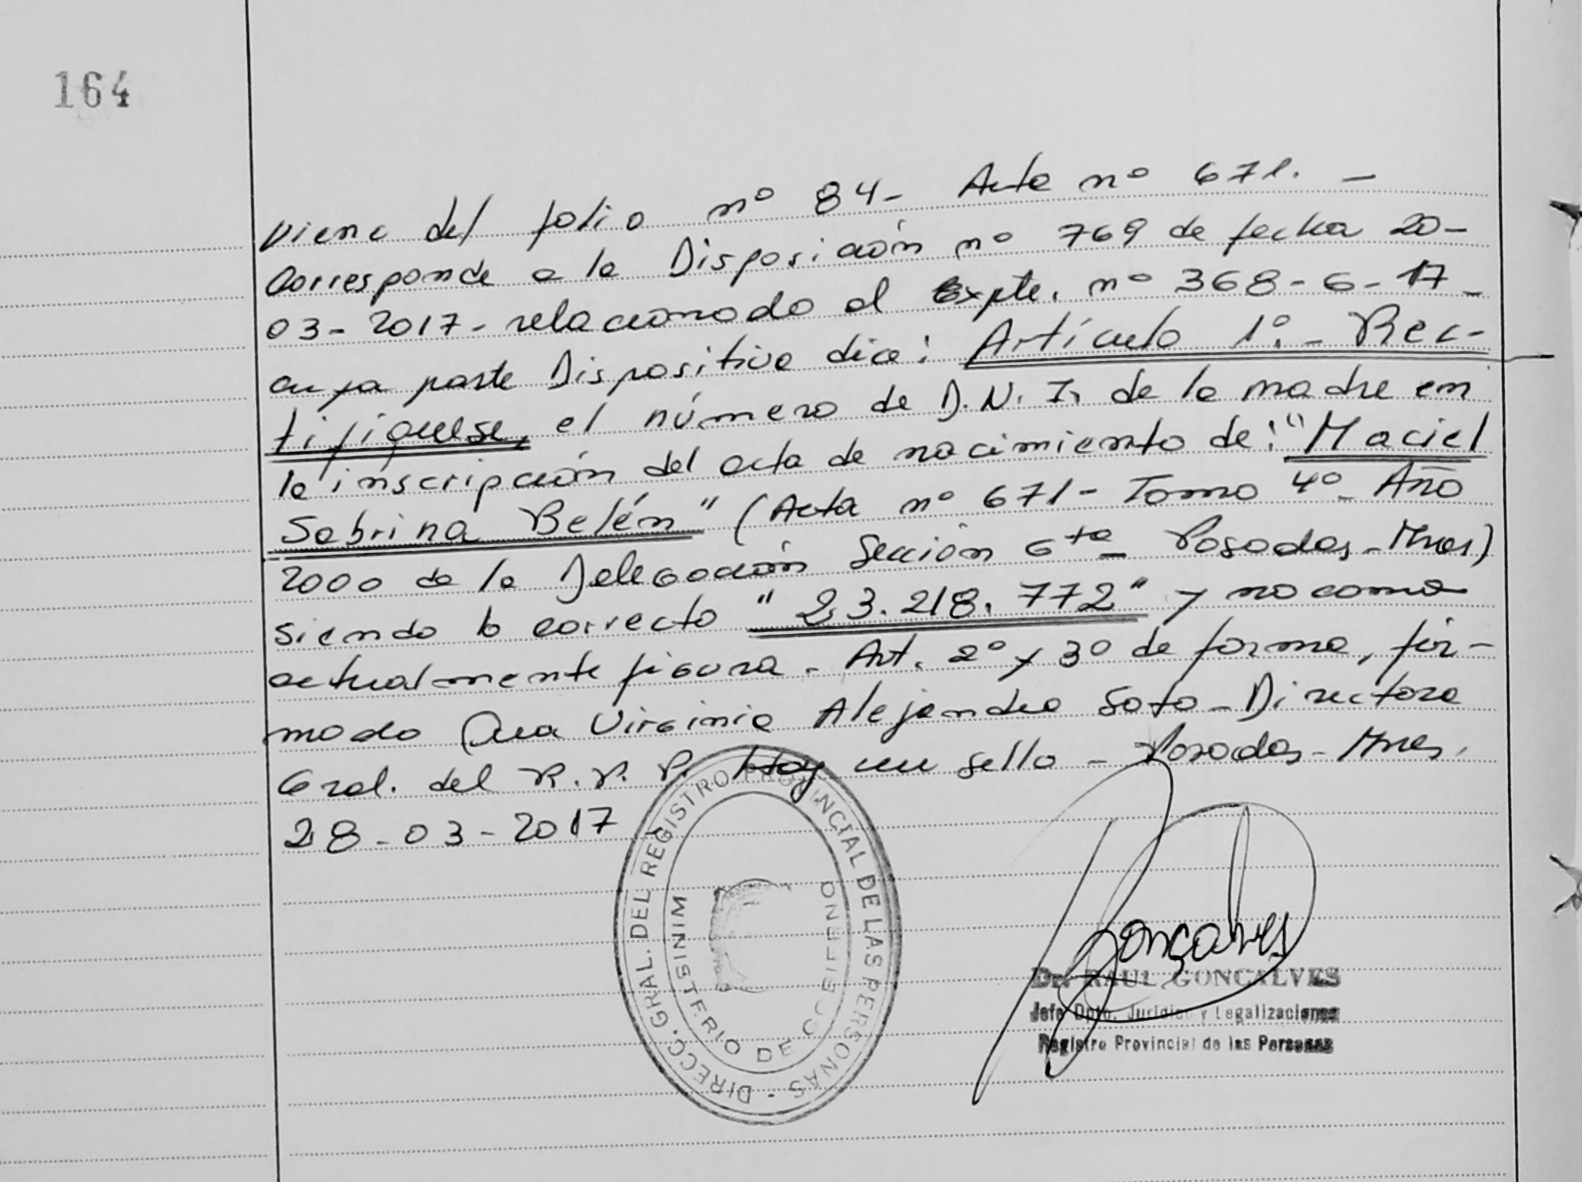 164
Viene del folio nº 84- Acta nº 671. -
Corresponde a la Disposición nº 769 de fecha 20-
03-2017- relacionado al Expte. nº 368-G-17-
cuya parte Dispositiva dice: Artículo 1º.- Rec-
tifiquese, el número de D.N.I. de la madre en
la inscripción del acta de nacimiento de: "Maciel
Sabrina Belén" (Acta nº 671- Tomo 4º- Año
2000 de la Delegación Sección 6ta- Posadas-Mnes)
siendo lo correcto "23.218.772" y no como
actualmente figura. Art. 2º y 3º de forma, fir-
mado Dra Virginia Alejandra Soto- Directora
Gral. del R.P.P. Hay un sello - Posadas- Mnes.
28-03-2017
DIRECC. GRAL. DEL REGISTRO PROVINCIAL DE LAS PERSONAS -
MINISTERIO DE GOBIERNO
Gonçalves
Dr. RAUL GONCALVES
Jefe Dpto. Jurídico y Legalizaciones
Registro Provincial de las Personas